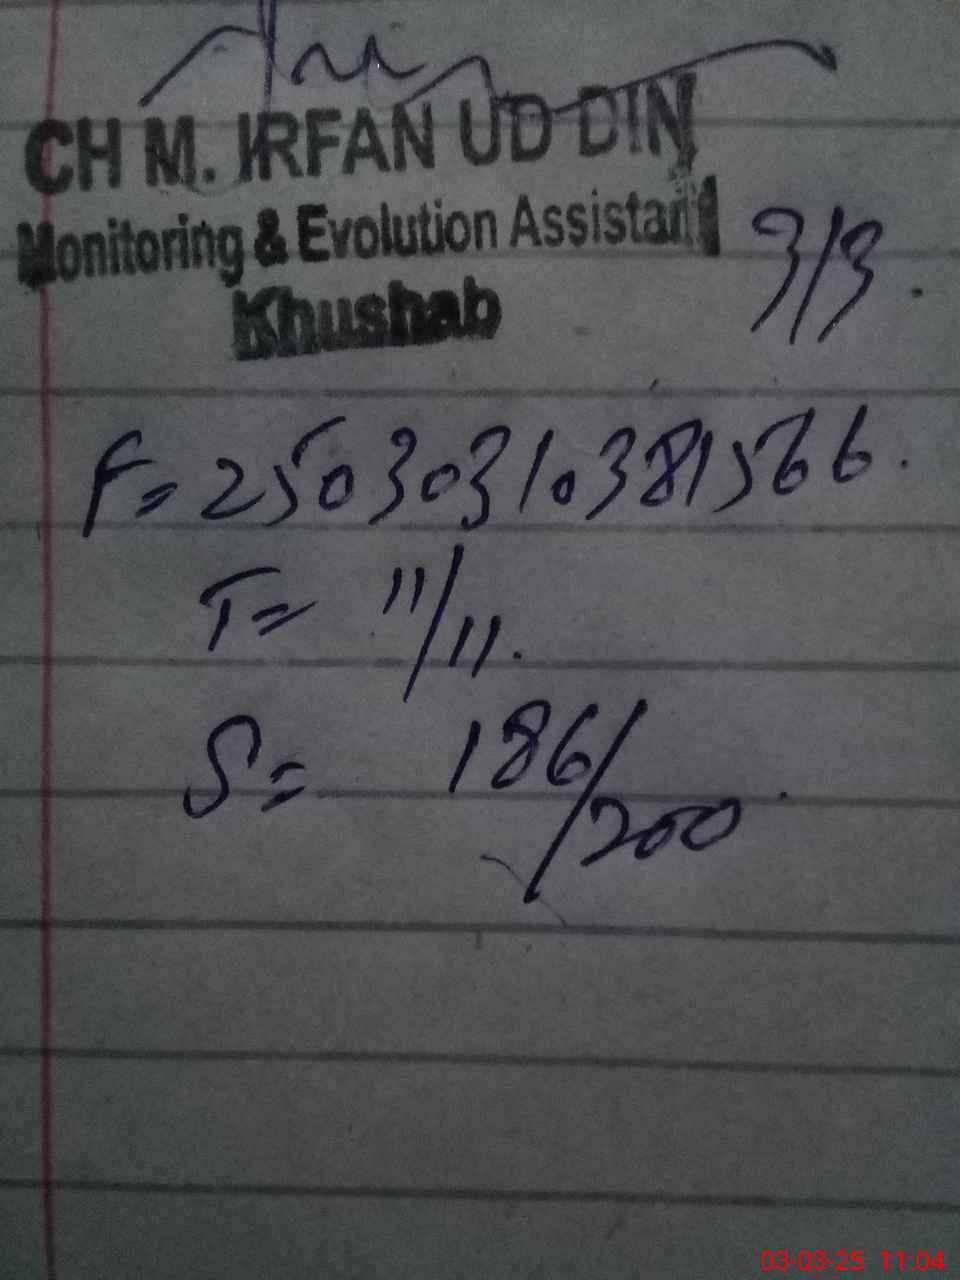 CH M. IRFAN UD DIN
Monitoring & Evolution Assistant
Khushab
3/3
F= 25030310381566.
T= 11/11.
S= 186/200
03-03-25 11:04